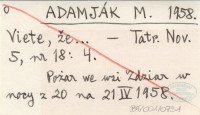 ADAMJÁK M. 1958.
Viete, že... – Tatr. Nov.
5, nr 18: 4.
Pożar we wsi Ždziar w
nocy z 20 na 21 IV 1958.